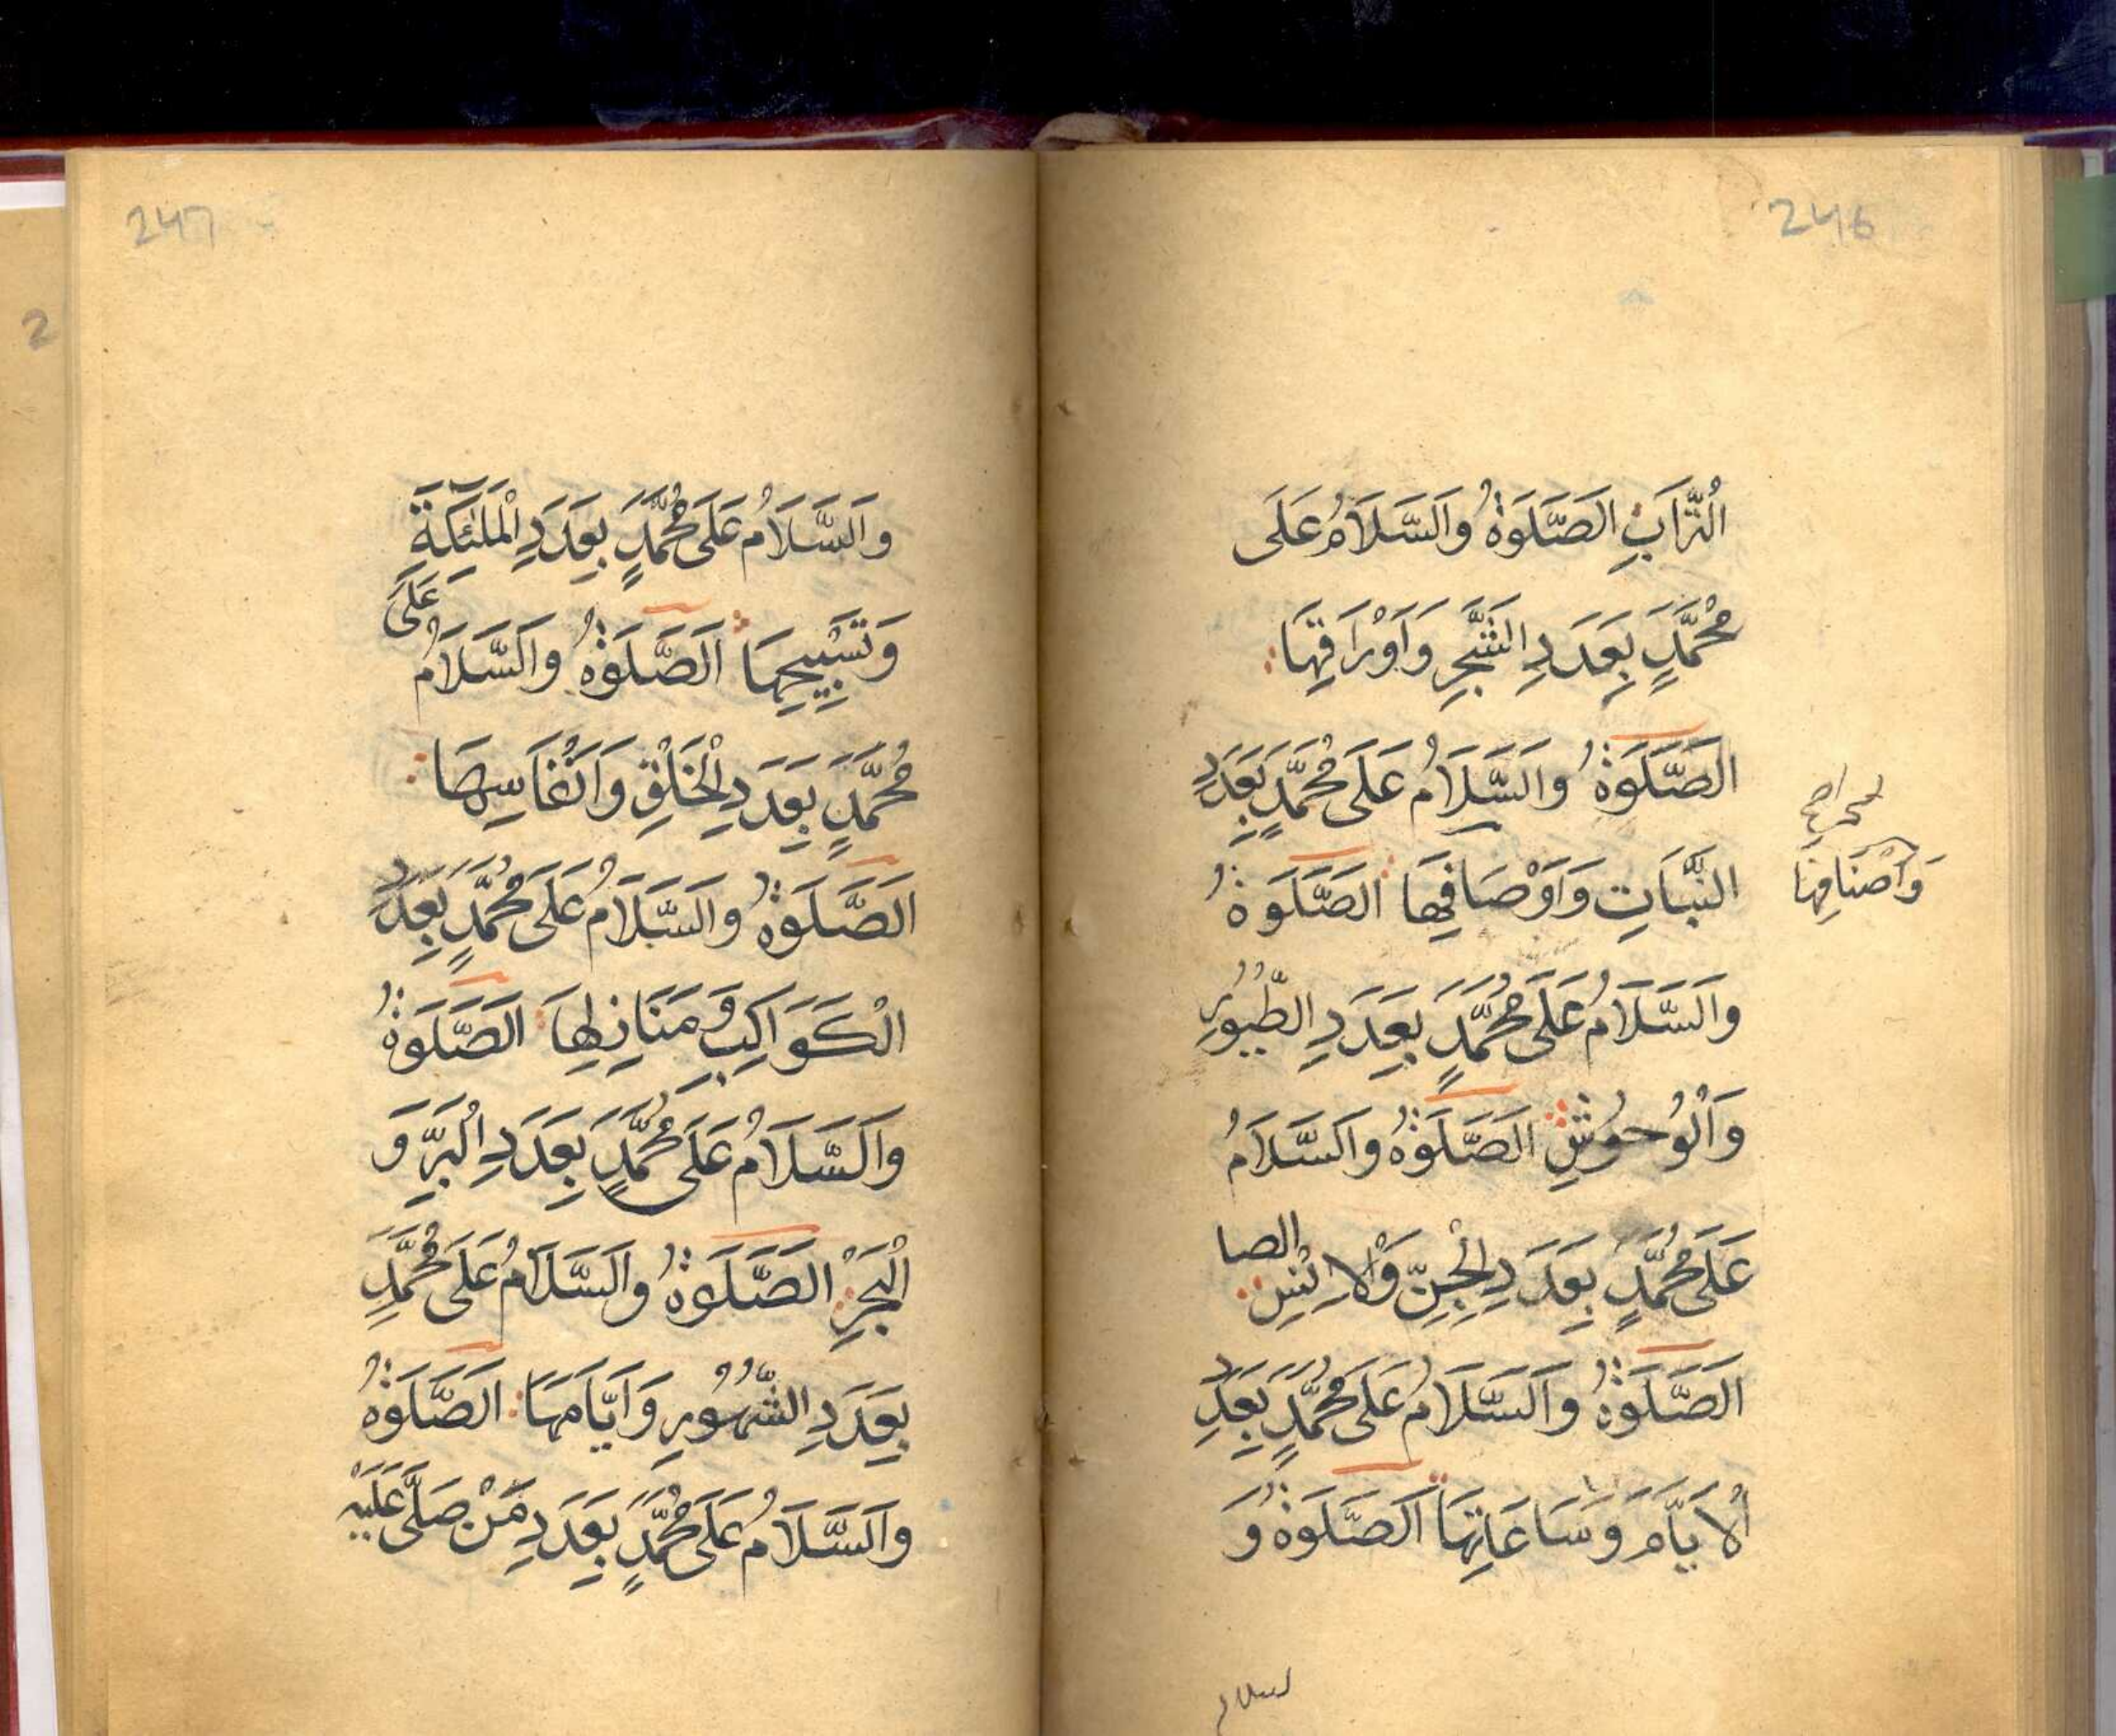 246
التُّرَابِ الصَّلَوٰةُ وَالسَّلَامُ عَلَى
مُحَمَّدٍ بِعَدَدِ الشَّجَرِ وَاَوْرَاقِهَا
الصَّلَوٰةُ وَالسَّلَامُ عَلَى مُحَمَّدٍ بِعَدَدِ
النَّبَاتِ وَاَوْصَافِهَا الصَّلَوٰةُ
وَاَصْنَافِهَا
وَالسَّلَامُ عَلَى مُحَمَّدٍ بِعَدَدِ الطُّيُورِ
وَالْوُحُوشِ الصَّلَوٰةُ وَالسَّلَامُ
عَلَى مُحَمَّدٍ بِعَدَدِ الْجِنِّ وَالْاِنْسِ
الصَّلَوٰةُ وَالسَّلَامُ عَلَى مُحَمَّدٍ بِعَدَدِ
الْاَيَّامِ وَسَاعَاتِهَا الصَّلَوٰةُ وَ
247
وَالسَّلَامُ عَلَى مُحَمَّدٍ بِعَدَدِ الْمَلٰئِكَةِ
وَتَسْبِيحِهَا الصَّلَوٰةُ وَالسَّلَامُ عَلَى
مُحَمَّدٍ بِعَدَدِ الْخَلْقِ وَاَنْفَاسِهَا
الصَّلَوٰةُ وَالسَّلَامُ عَلَى مُحَمَّدٍ بِعَدَدِ
الْكَوَاكِبِ وَمَنَازِلِهَا الصَّلَوٰةُ
وَالسَّلَامُ عَلَى مُحَمَّدٍ بِعَدَدِ الْبَرِّ وَ
الْبَحْرِ الصَّلَوٰةُ وَالسَّلَامُ عَلَى مُحَمَّدٍ
بِعَدَدِ الشُّهُورِ وَاَيَّامِهَا الصَّلَوٰةُ
وَالسَّلَامُ عَلَى مُحَمَّدٍ بِعَدَدِ مَنْ صَلَّى عَلَيْهِ